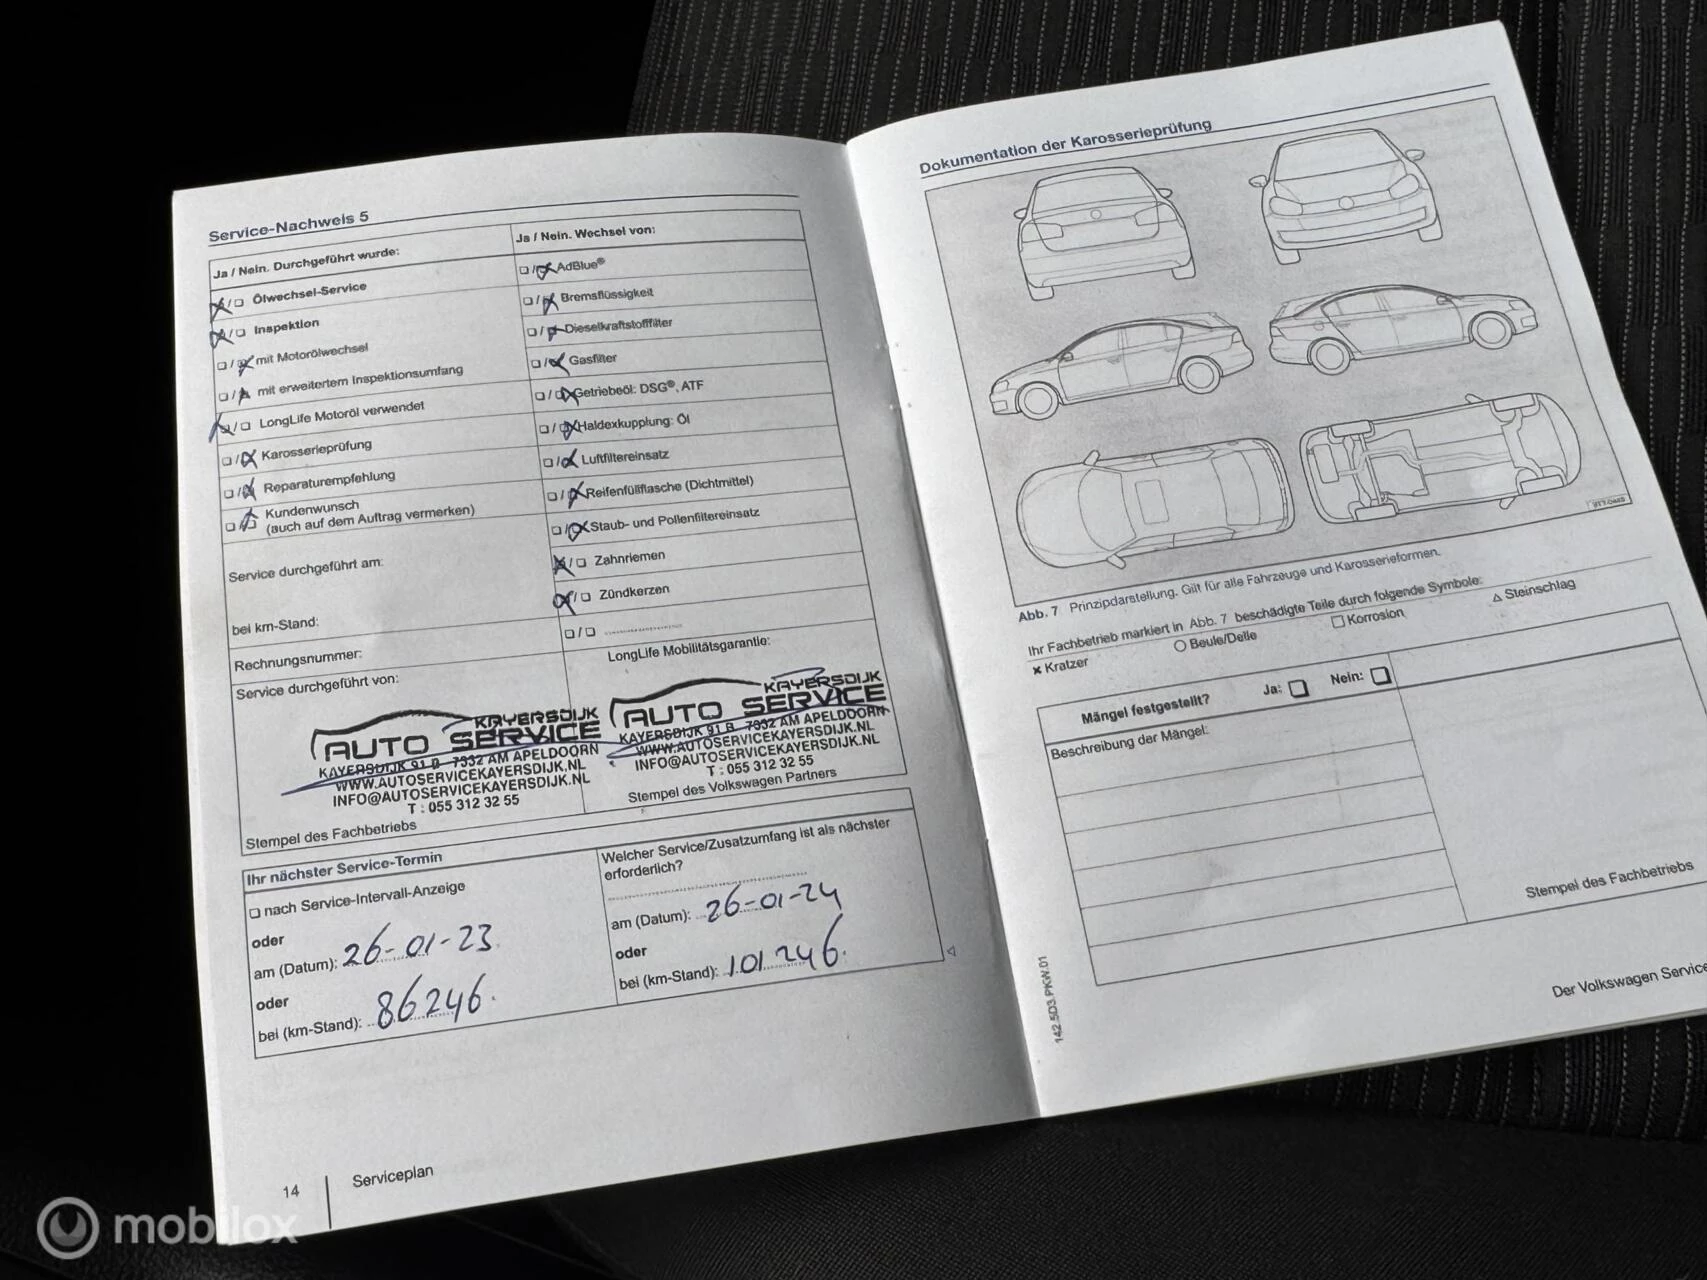 Service-Nachweis 5
Ja / Nein. Durchgeführt wurde:
Ölwechsel-Service
Inspektion
mit Motorölwechsel
mit erweitertem Inspektionsumfang
LongLife Motoröl verwendet
Karosserieprüfung
Reparaturempfehlung
Kundenwunsch
(auch auf dem Auftrag vermerken)
Service durchgeführt am:
bei km-Stand:
Rechnungsnummer:
Service durchgeführt von:
KAYERSDIJK
AUTO SERVICE
KAYERSDIJK 91 B 7332 AM APELDOORN
WWW.AUTOSERVICEKAYERSDIJK.NL
INFO@AUTOSERVICEKAYERSDIJK.NL
T : 055 312 32 55
Stempel des Fachbetriebs
Ja / Nein. Wechsel von:
AdBlue®
Bremsflüssigkeit
Dieselkraftstofffilter
Gasfilter
Getriebeöl: DSG®, ATF
Haldexkupplung: Öl
Luftfiltereinsatz
Reifenfüllflasche (Dichtmittel)
Staub- und Pollenfiltereinsatz
Zahnriemen
Zündkerzen
LongLife Mobilitätsgarantie:
KAYERSDIJK
AUTO SERVICE
KAYERSDIJK 91 B 7332 AM APELDOORN
WWW.AUTOSERVICEKAYERSDIJK.NL
INFO@AUTOSERVICEKAYERSDIJK.NL
T : 055 312 32 55
Stempel des Volkswagen Partners
Ihr nächster Service-Termin
nach Service-Intervall-Anzeige
oder
am (Datum): 26-01-23
oder
bei (km-Stand): 86246.
Welcher Service/Zusatzumfang ist als nächster
erforderlich?
am (Datum): 26-01-24
oder
bei (km-Stand): 101246.
14
Serviceplan
Dokumentation der Karosserieprüfung
Abb. 7 Prinzipdarstellung. Gilt für alle Fahrzeuge und Karosserieformen.
Ihr Fachbetrieb markiert in Abb. 7 beschädigte Teile durch folgende Symbole:
× Kratzer ○ Beule/Delle □ Korrosion △ Steinschlag
Mängel festgestellt? Ja: Nein:
Beschreibung der Mängel:
Stempel des Fachbetriebs
142.5D3.PKW.01
Der Volkswagen Service
mobilox